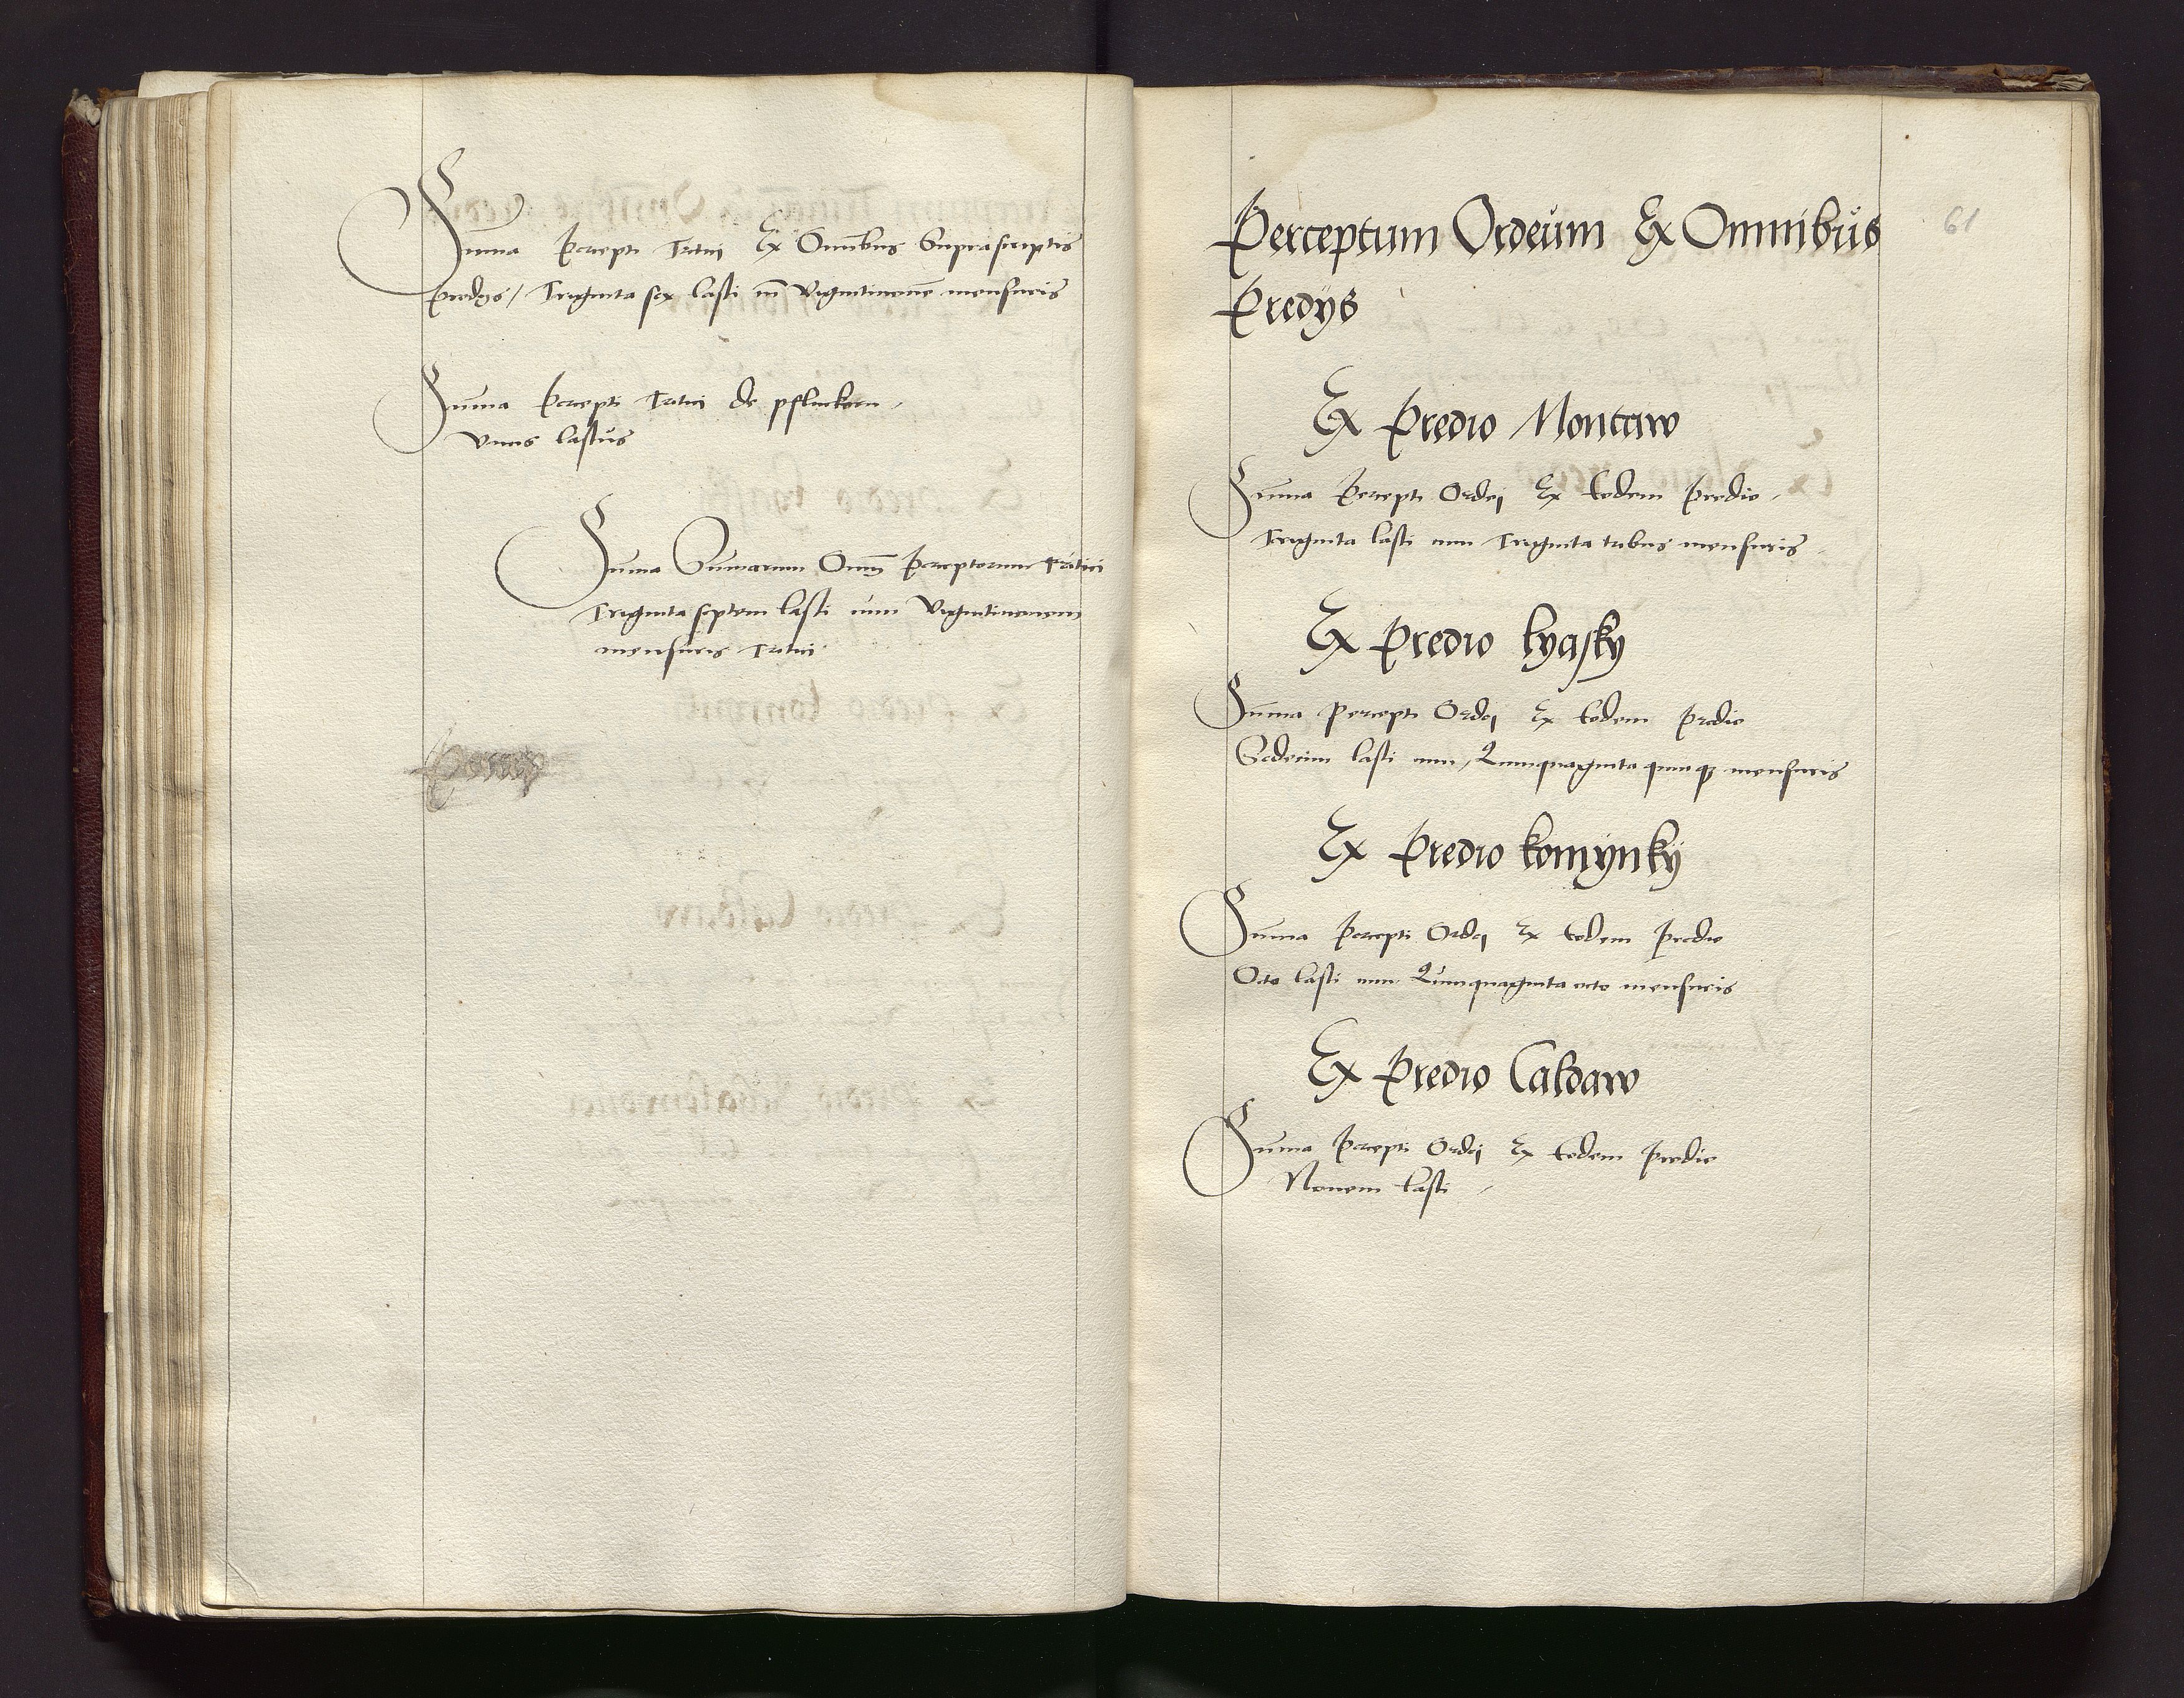 Suma Percepti Tritici Ex Omnibus Suprascriptis
Predÿs / Triginta sex lasti cum Vigintinouem mensuris
Suma Percepti Tritici de pflukorn
Vnus lastus
Suma Sumarum Omnium Perceptorum Tritici
Triginta septem lasti cum Vigintinouem
mensuris Tritici
Perceptum Ordeum Ex Omnibus
61
Predÿs
Ex Predio Montaw
Suma Percepti Ordej Ex Eodem Predio
Triginta lasti cum Triginta tribus mensuris
Ex Predio Lyasky
Suma Percepti Ordej Ex Eodem Predio
Sedecim lasti cum Quinquaginta quinque mensuris
Ex Predio Komÿnkÿ
Suma Percepti Ordej Ex Eodem Predio
Octo lasti cum Quinquaginta octo mensuris
Ex Predio Caldaw
Suma Percepti Ordej Ex Eodem Predio
Nouem lasti